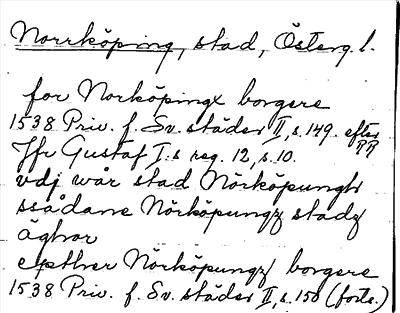 Norrköping, stad, Österg. l.
for Norköpingx borgere
1538 Priv. f. Sv. städer II, s. 149. efter RR
Jfr Gustaf I:s reg. 12, s. 10.
vdj wår stad Nörköpungh
ssådane Nörköpungz stadz
äghor
epther Nörköpungz borgere
1538 Priv. f. Sv. städer II, s. 150 (forts.)